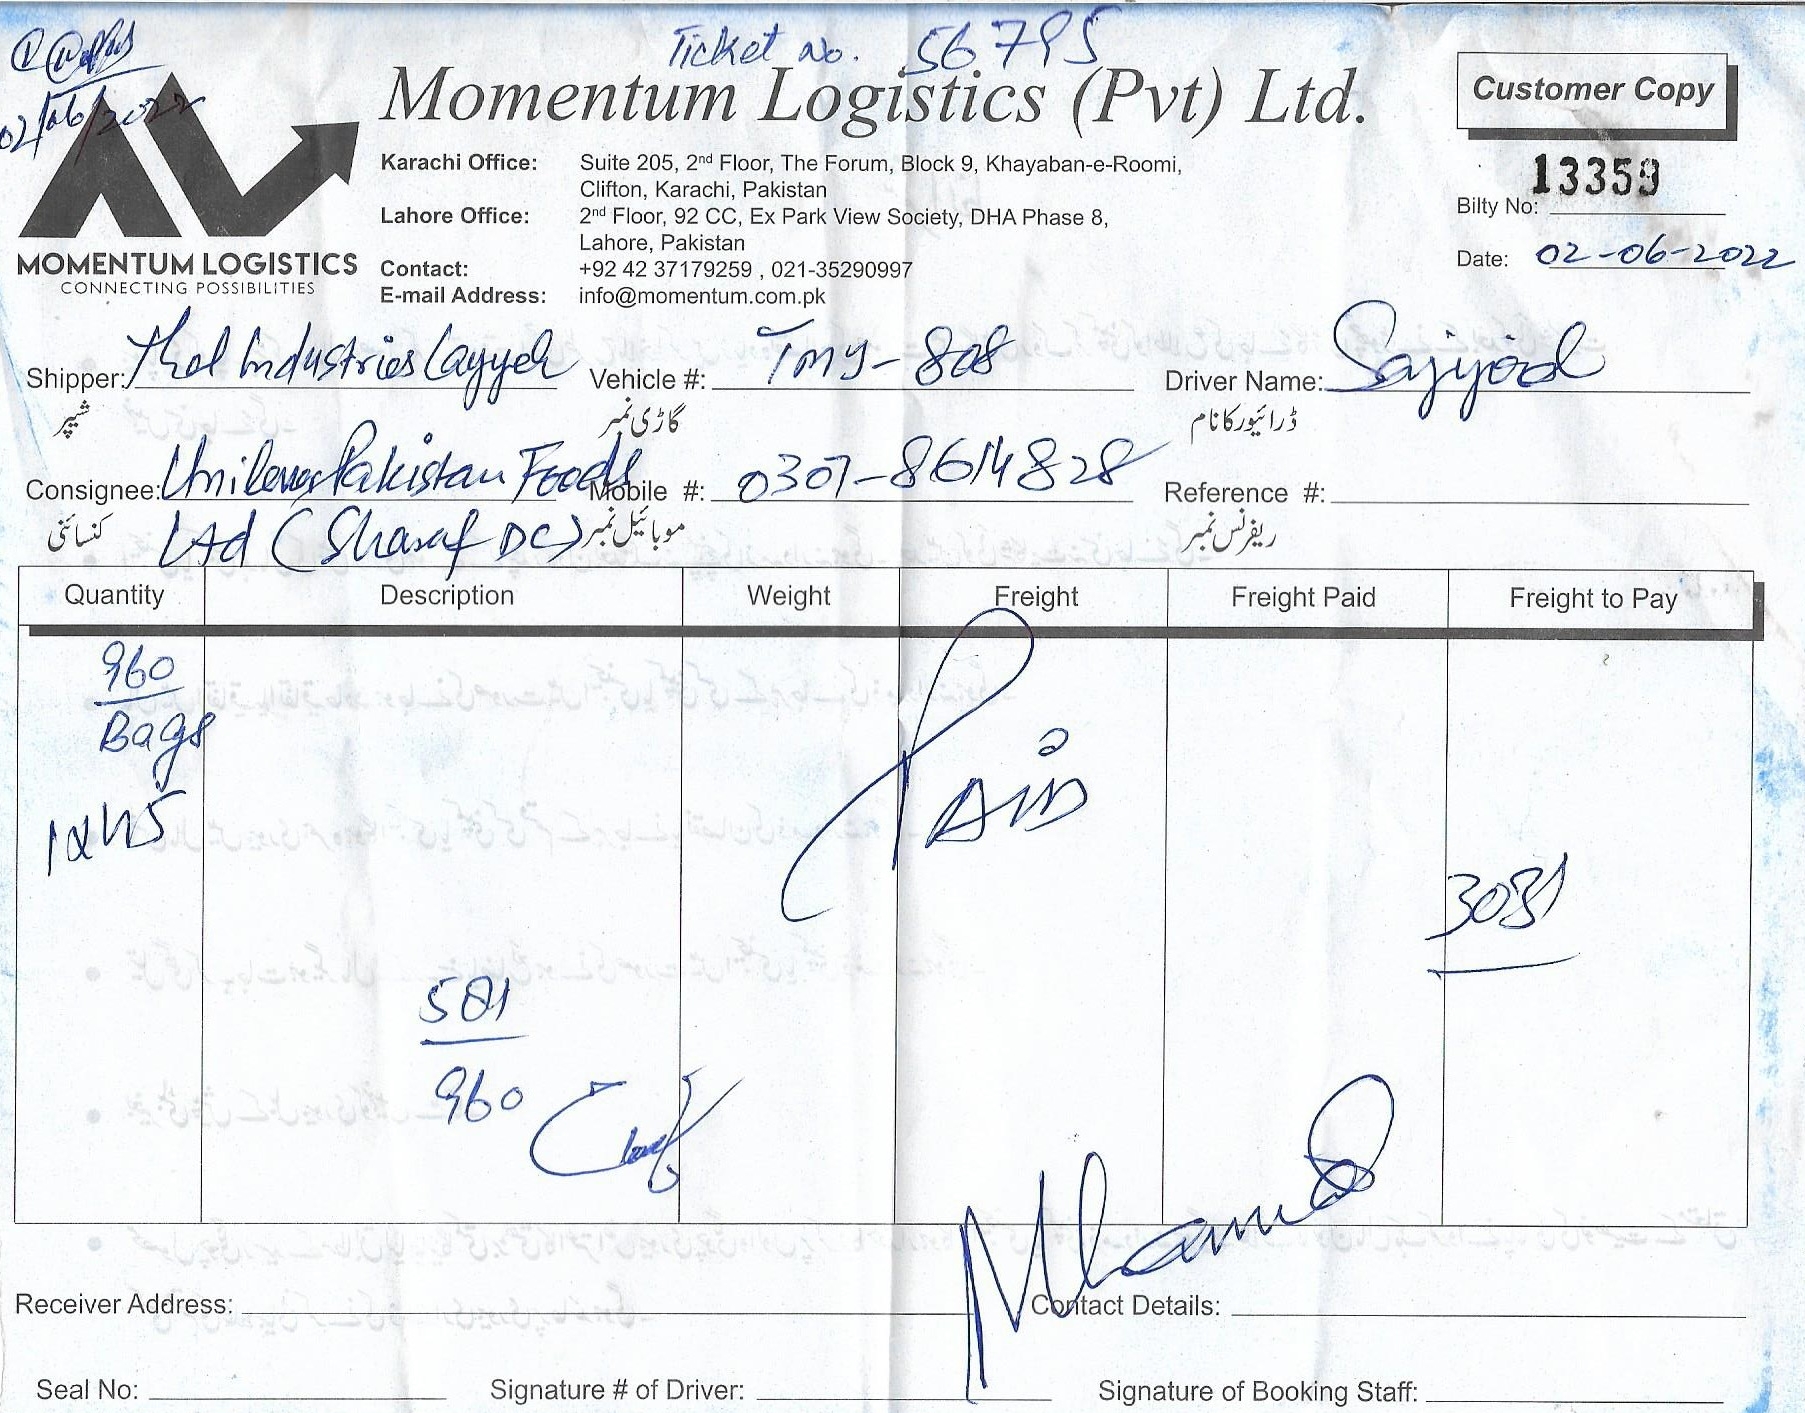 Ticket No. 56795
02/06/2022
Momentum Logistics (Pvt) Ltd.
Customer Copy
MOMENTUM LOGISTICS
CONNECTING POSSIBILITIES
Karachi Office: Suite 205, 2nd Floor, The Forum, Block 9, Khayaban-e-Roomi,
Clifton, Karachi, Pakistan
Lahore Office: 2nd Floor, 92 CC, Ex Park View Society, DHA Phase 8,
Lahore, Pakistan
Contact: +92 42 37179259 , 021-35290997
E-mail Address: info@momentum.com.pk
Bilty No: 13359
Date: 02-06-2022
Shipper: Thal Industries Layyah Vehicle #: TMY-808 Driver Name: Sajjad
شپر گاڑی نمبر ڈرائیور کا نام
Consignee: Unilever Pakistan Foods Mobile #: 0307-8614828 Reference #:
کنسائنی Ltd (Sharaf DC) موبائیل نمبر ریفرنس نمبر
Quantity Description Weight Freight Freight Paid Freight to Pay
960
Bags
PAID
3031
581
960
Receiver Address: Contact Details:
Seal No: Signature # of Driver: Signature of Booking Staff: